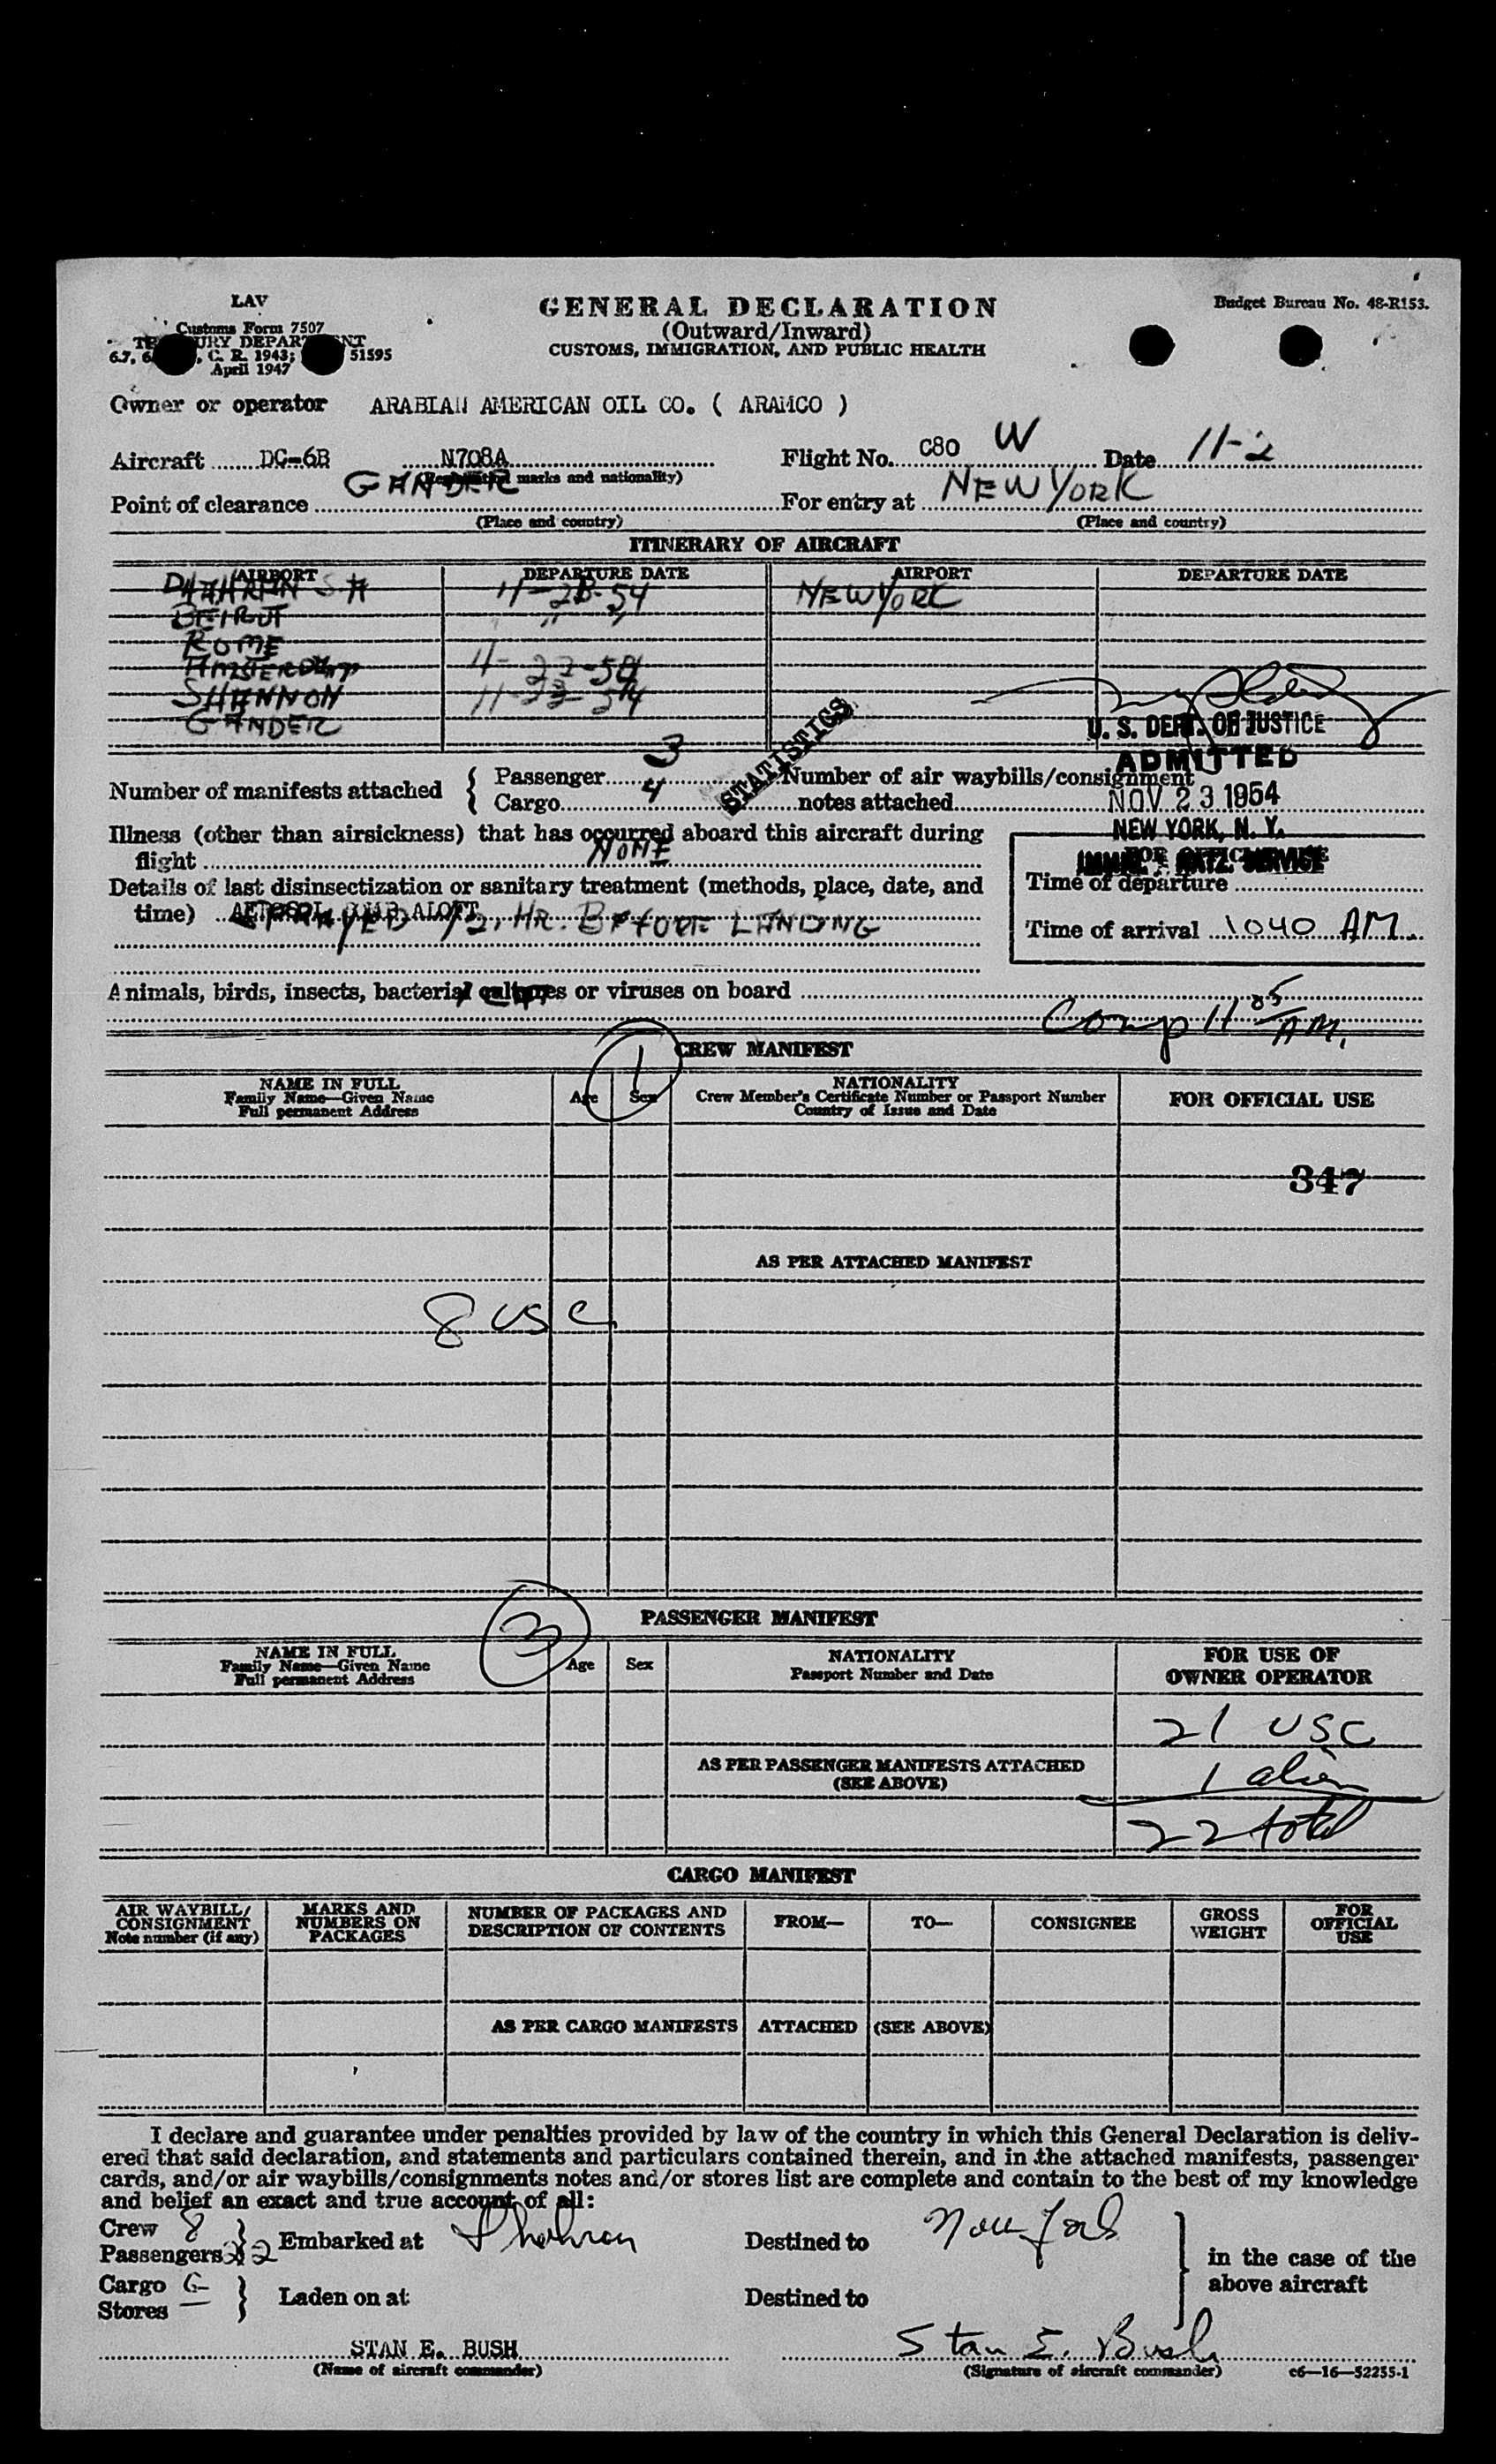 LAV
Customs Form 7507
April 1947
51595
GENERAL DECLARATION
(Outward/Inward)
CUSTOMS, IMMIGRATION, AND PUBLIC HEALTH
Budget Bureau No. 48-R153.
Owner or operator ARABIAN AMERICAN OIL CO. ( ARAMCO )
Aircraft DC-6B N708A Flight No. C80 W Date 11-2
marks and nationality)
Point of clearance GANDER For entry at NEW YORK
(Place and country) (Place and country)
ITINERARY OF AIRCRAFT
AIRPORT DEPARTURE DATE AIRPORT DEPARTURE DATE
DHAHRAN S A 54 NEW YORK
BEIRUT " "
ROME
AMSTERDAM 11-22-54
SHANNON 11-23-54
GANDER
U. S. DEPT. OF JUSTICE
ADMITTED
NOV 23 1954
NEW YORK, N. Y.
IMMIG. & NATZ. SERVICE
STATISTICS
Number of manifests attached { Passenger 3
Cargo 4
Number of air waybills/consignment
notes attached
Illness (other than airsickness) that has occurred aboard this aircraft during
flight NONE
Details of last disinsectization or sanitary treatment (methods, place, date, and
time) AEROSOL BOMB ALOFT
SPRAYED 1/2 HR. BEFORE LANDING
FOR OFFICIAL USE
Time of departure
Time of arrival 1040 AM
Animals, birds, insects, bacterial cultures or viruses on board
Comp 11 05 AM.
CREW MANIFEST
1
NAME IN FULL
Family Name—Given Name
Full permanent Address
Age Sex
NATIONALITY
Crew Member's Certificate Number or Passport Number
Country of Issue and Date
FOR OFFICIAL USE
347
AS PER ATTACHED MANIFEST
8 USC
PASSENGER MANIFEST
3
NAME IN FULL
Family Name—Given Name
Full permanent Address
Age Sex
NATIONALITY
Passport Number and Date
FOR USE OF
OWNER OPERATOR
21 USC
AS PER PASSENGER MANIFESTS ATTACHED
(SEE ABOVE)
1 alien
22 total
CARGO MANIFEST
AIR WAYBILL/
CONSIGNMENT
Note number (if any)
MARKS AND
NUMBERS ON
PACKAGES
NUMBER OF PACKAGES AND
DESCRIPTION OF CONTENTS
FROM— TO— CONSIGNEE
GROSS
WEIGHT
FOR
OFFICIAL
USE
AS PER CARGO MANIFESTS ATTACHED (SEE ABOVE)
I declare and guarantee under penalties provided by law of the country in which this General Declaration is deliv-
ered that said declaration, and statements and particulars contained therein, and in the attached manifests, passenger
cards, and/or air waybills/consignments notes and/or stores list are complete and contain to the best of my knowledge
and belief an exact and true account of all:
Crew 8
Passengers 22 } Embarked at Dhahran Destined to New York
in the case of the
above aircraft
Cargo
Stores } Laden on at Destined to
STAN E. BUSH Stan E. Bush
(Name of aircraft commander) (Signature of aircraft commander) c6—16—52255-1